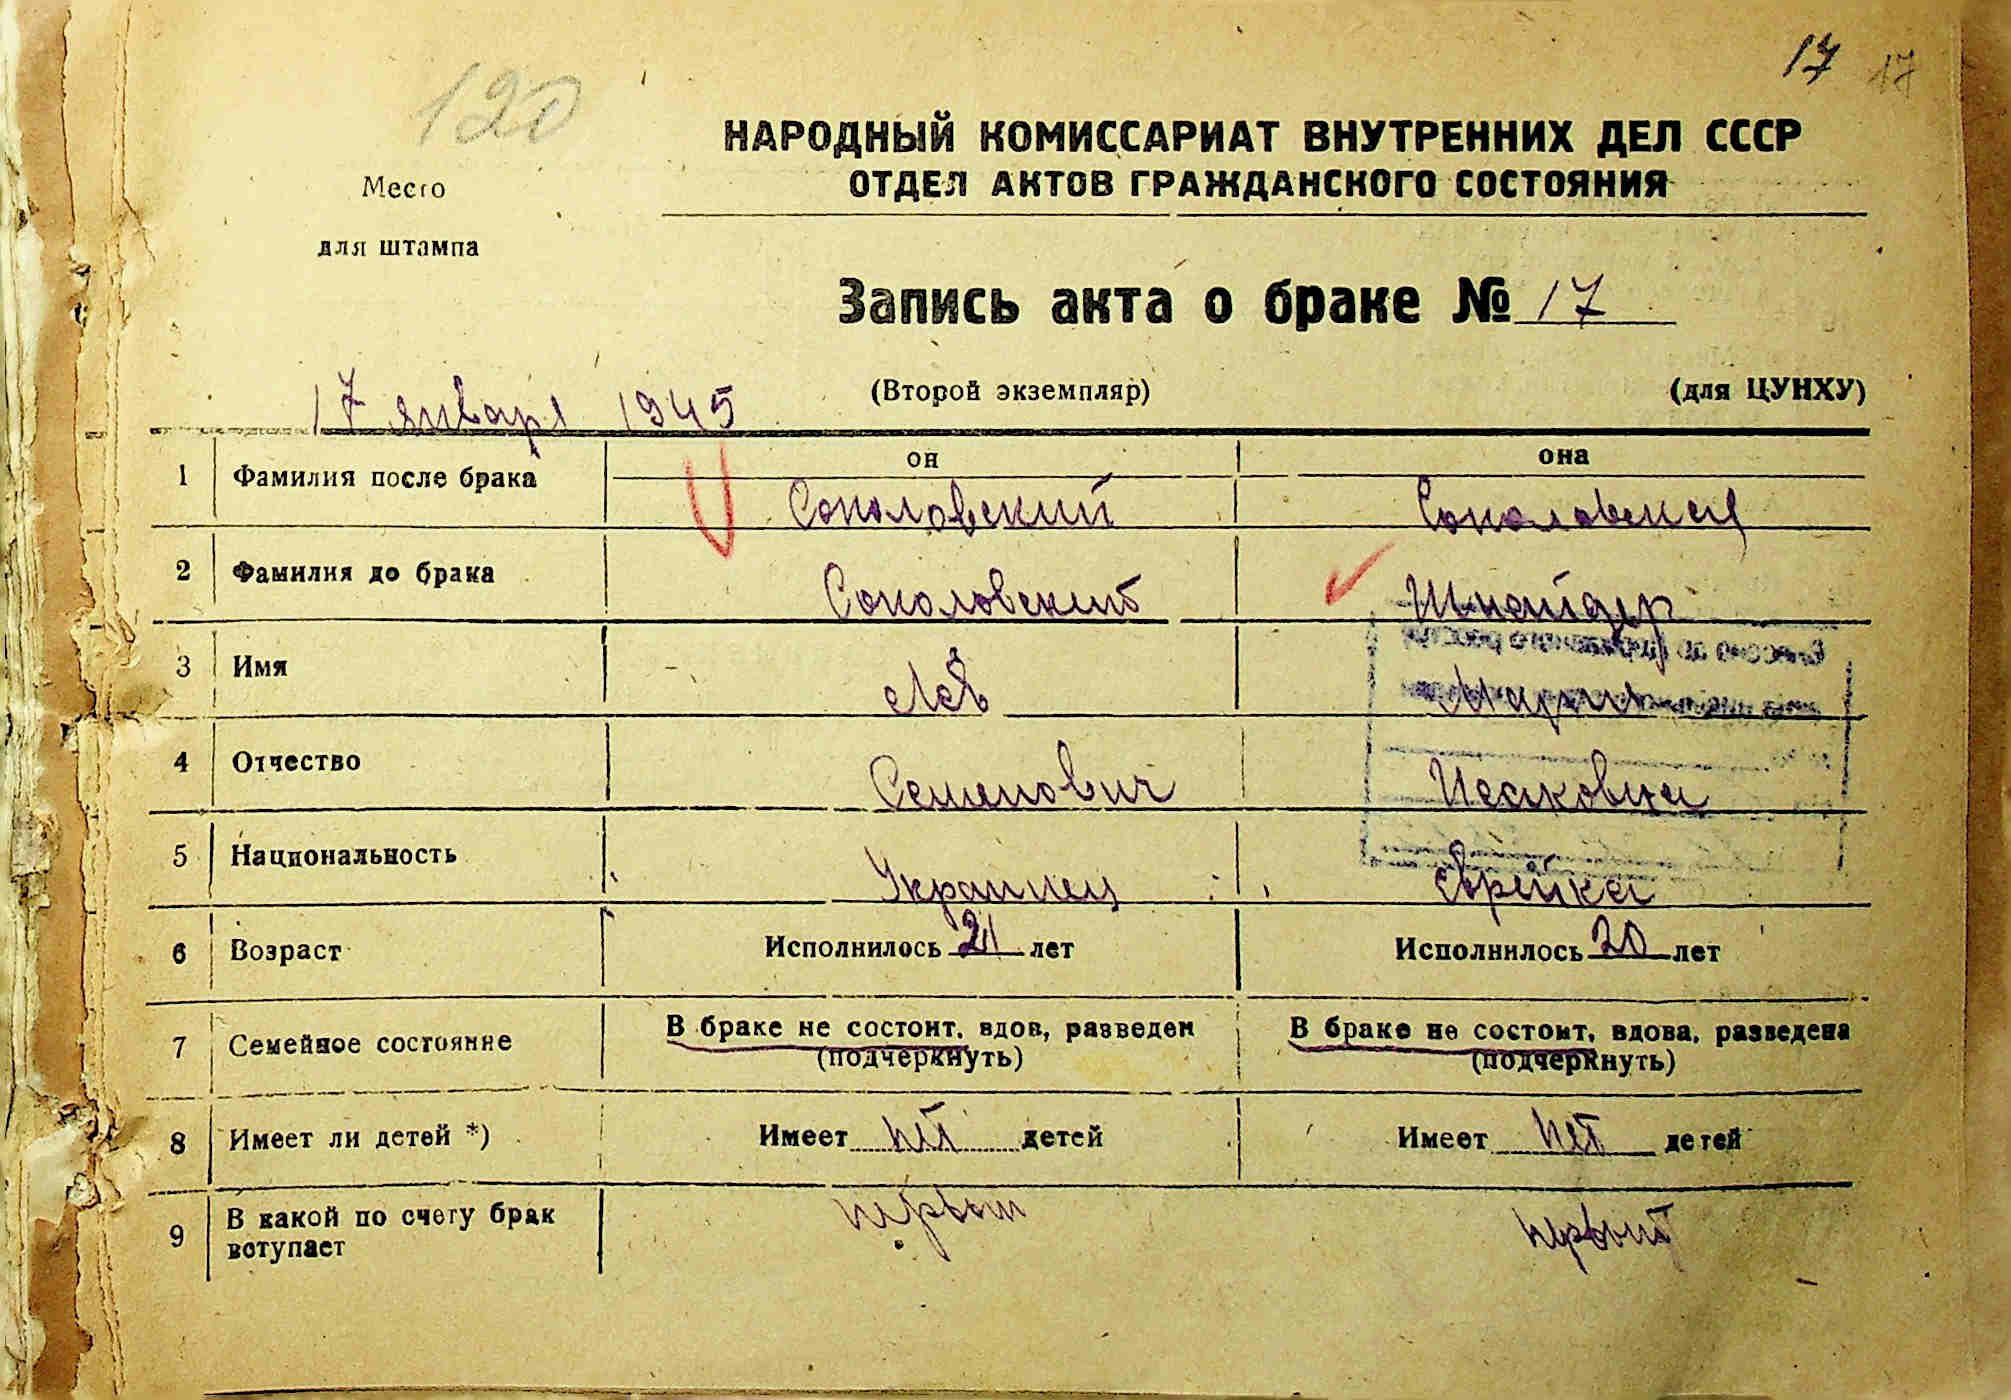 17 17
120
НАРОДНЫЙ КОМИССАРИАТ ВНУТРЕННИХ ДЕЛ СССР
ОТДЕЛ АКТОВ ГРАЖДАНСКОГО СОСТОЯНИЯ
Место
для штампа
Запись акта о браке № 17
17 января 1945
(Второй экземпляр) (для ЦУНХУ)
он она
1 Фамилия после брака Соколовский Соколовская
2 Фамилия до брака Соколовский Шнайдер
3 Имя Лев Мария
4 Отчество Семенович Исаковна
5 Национальность Украинец Еврейка
6 Возраст Исполнилось лет Исполнилось 20 лет
7 Семейное состояние В браке не состоит, вдов, разведен В браке не состоит, вдова, разведена
(подчеркнуть) (подчеркнуть)
8 Имеет ли детей *) Имеет нет детей Имеет нет детей
9 В какой по счету брак вступает первый первый